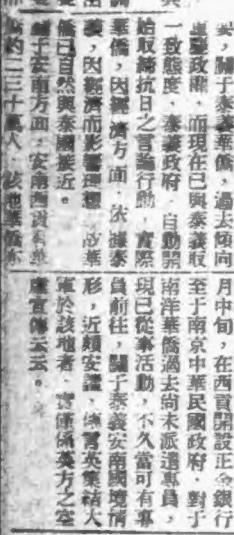 關于泰義華僑，過去傾向
重慶政權，而現在已與泰義取
一致態度，泰義政府，自動開
始取締抗日之言論行動，實際
華僑，因經濟方面，依據泰
義，因經濟而影響理想，故華
僑已自然與泰國接近。
關于安南方面，安南西貢有華
僑約二三十萬人，該地華僑亦
月中旬，在西貢開設正金銀行
至于南京中華民國政府，對于
南洋華僑過去尚未派遣專員，
現已從事活動，不久當可有專
員前往，關于泰義安南國境情
形，近頗安謐，據言英集結大
軍於該地者，實僅係英方之空
虛宣傳云云。